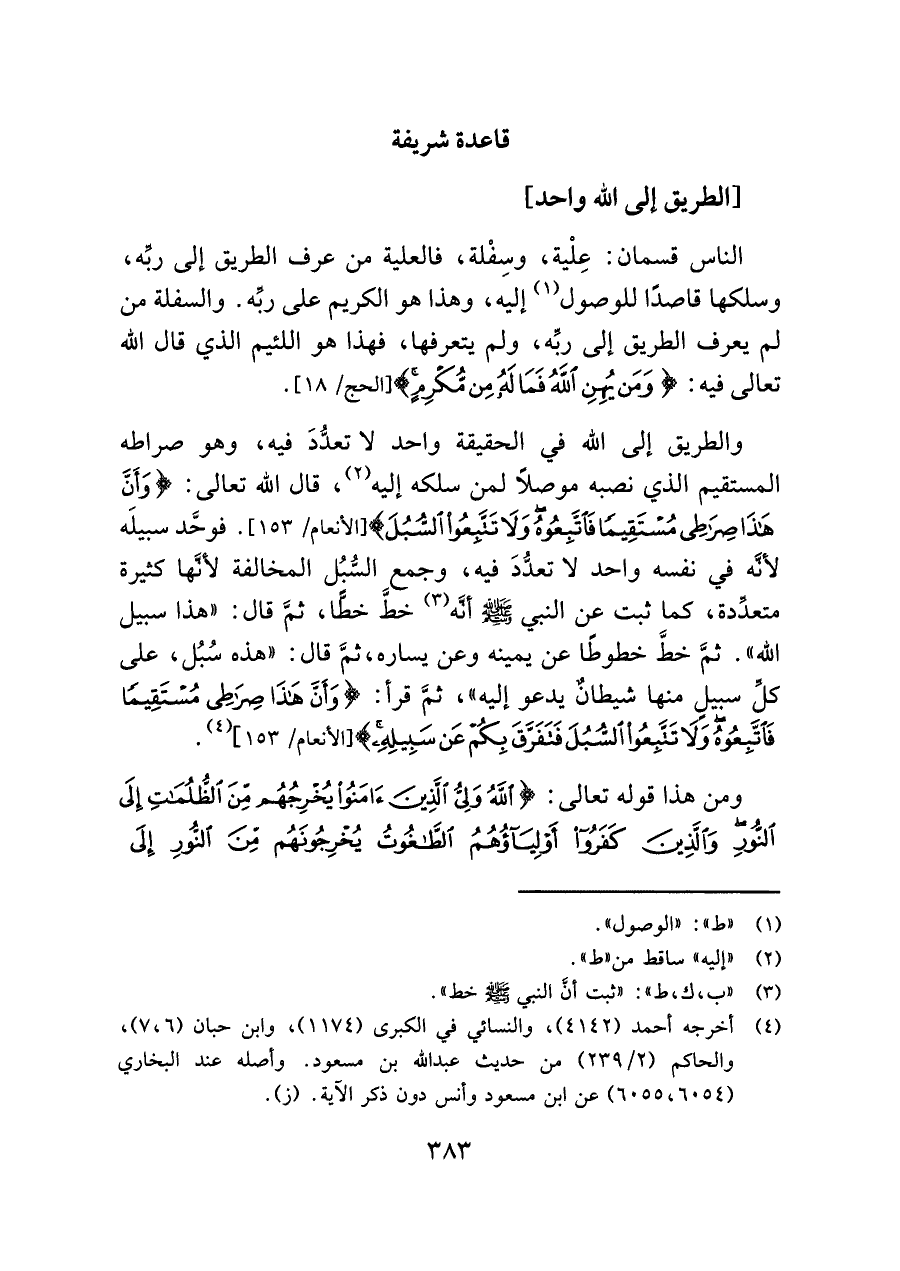 قاعدة شريفة
[الطريق إلى الله واحد]
الناس قسمان: عِلْية، وسِفْلة، فالعلية من عرف الطريق إلى ربِّه،
وسلكها قاصدًا للوصول(١) إليه، وهذا هو الكريم على ربِّه. والسفلة من
لم يعرف الطريق إلى ربِّه، ولم يتعرفها، فهذا هو اللئيم الذي قال الله
تعالى فيه: ﴿ وَمَن يُهِنِ ٱللَّهُ فَمَا لَهُۥ مِن مُّكْرِمٍۚ ﴾[الحج/ ١٨].
والطريق إلى الله في الحقيقة واحد لا تعدُّدَ فيه، وهو صراطه
المستقيم الذي نصبه موصلاً لمن سلكه إليه(٢)، قال الله تعالى: ﴿ وَأَنَّ
هَٰذَا صِرَٰطِى مُسْتَقِيمًا فَٱتَّبِعُوهُۖ وَلَا تَتَّبِعُوا۟ ٱلسُّبُلَ﴾[الأنعام/ ١٥٣]. فوحَّد سبيلَه
لأنَّه في نفسه واحد لا تعدُّدَ فيه، وجمع السُّبُل المخالفة لأنَّها كثيرة
متعدِّدة، كما ثبت عن النبي ﷺ أنَّه(٣) خطَّ خطًّا، ثمَّ قال: «هذا سبيل
الله». ثمَّ خطَّ خطوطًا عن يمينه وعن يساره،ثمَّ قال: «هذه سُبُل، على
كلِّ سبيلٍ منها شيطانٌ يدعو إليه»، ثمَّ قرأ: ﴿ وَأَنَّ هَٰذَا صِرَٰطِى مُسْتَقِيمًا
فَٱتَّبِعُوهُۖ وَلَا تَتَّبِعُوا۟ ٱلسُّبُلَ فَتَفَرَّقَ بِكُمْ عَن سَبِيلِهِۦۚ ﴾[الأنعام/ ١٥٣](٤).
ومن هذا قوله تعالى: ﴿ ٱللَّهُ وَلِىُّ ٱلَّذِينَ ءَامَنُوا۟ يُخْرِجُهُم مِّنَ ٱلظُّلُمَٰتِ إِلَى
ٱلنُّورِۖ وَٱلَّذِينَ كَفَرُوٓا۟ أَوْلِيَآؤُهُمُ ٱلطَّٰغُوتُ يُخْرِجُونَهُم مِّنَ ٱلنُّورِ إِلَى
(١) «ط»: «الوصول».
(٢) «إليه» ساقط من«ط».
(٣) «ب،ك،ط»: «ثبت أنَّ النبي ﷺ خط».
(٤) أخرجه أحمد (٤١٤٢)، والنسائي في الكبرى (١١٧٤)، وابن حبان (٧،٦)،
والحاكم (٢٣٩/٢) من حديث عبدالله بن مسعود. وأصله عند البخاري
(٦٠٥٥،٦٠٥٤) عن ابن مسعود وأنس دون ذكر الآية. (ز).
٣٨٣